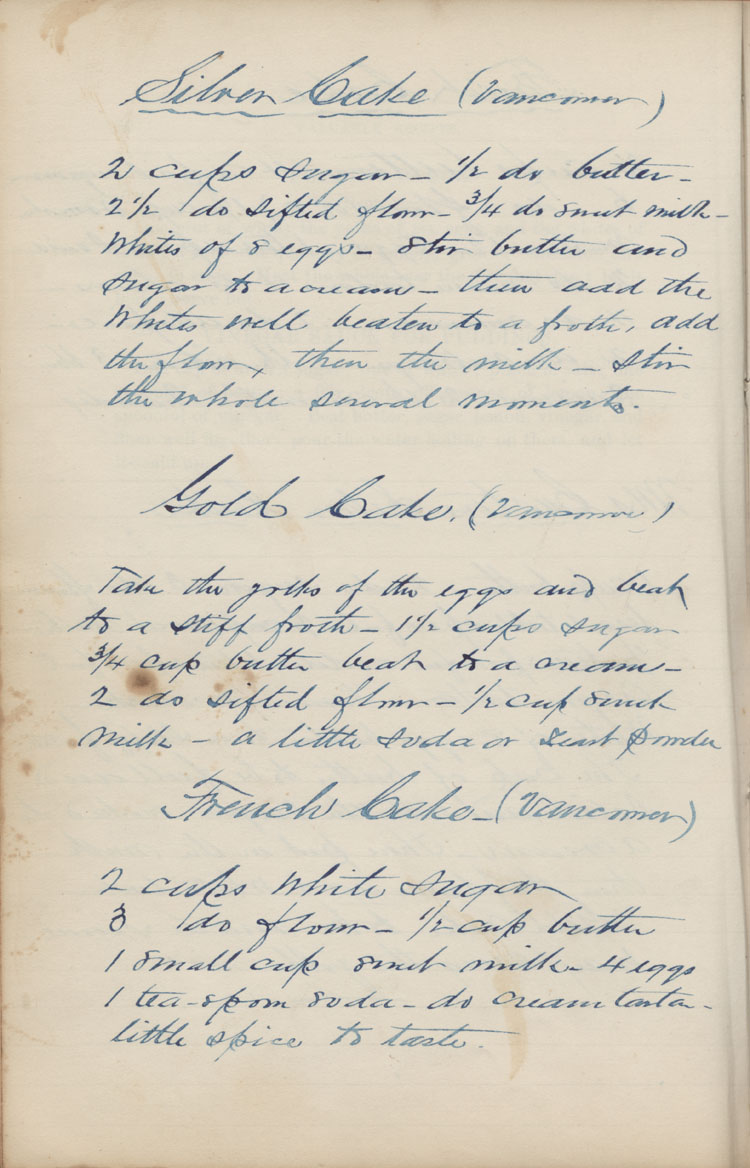 Silver Cake (Vancouver)
2 cups sugar – 1/2 do butter –
2 1/2 do sifted flour – 3/4 do sweet milk –
Whites of 8 eggs – Stir butter and
sugar to a cream – then add the
Whites well beaten to a froth, add
the flour, then the milk – stir
the whole several moments.
Gold Cake. (Vancouver)
Take the yolks of the eggs and beat
to a stiff froth – 1 1/2 cups sugar
3/4 cup butter beat to a cream –
2 do sifted flour – 1/2 cup sweet
milk – a little soda or Yeast Powder
French Cake – (Vancouver)
2 cups White sugar
3 do flour – 1/2 cup butter
1 small cup sweet milk – 4 eggs
1 tea-spoon soda – do cream tartar –
little spice to taste.